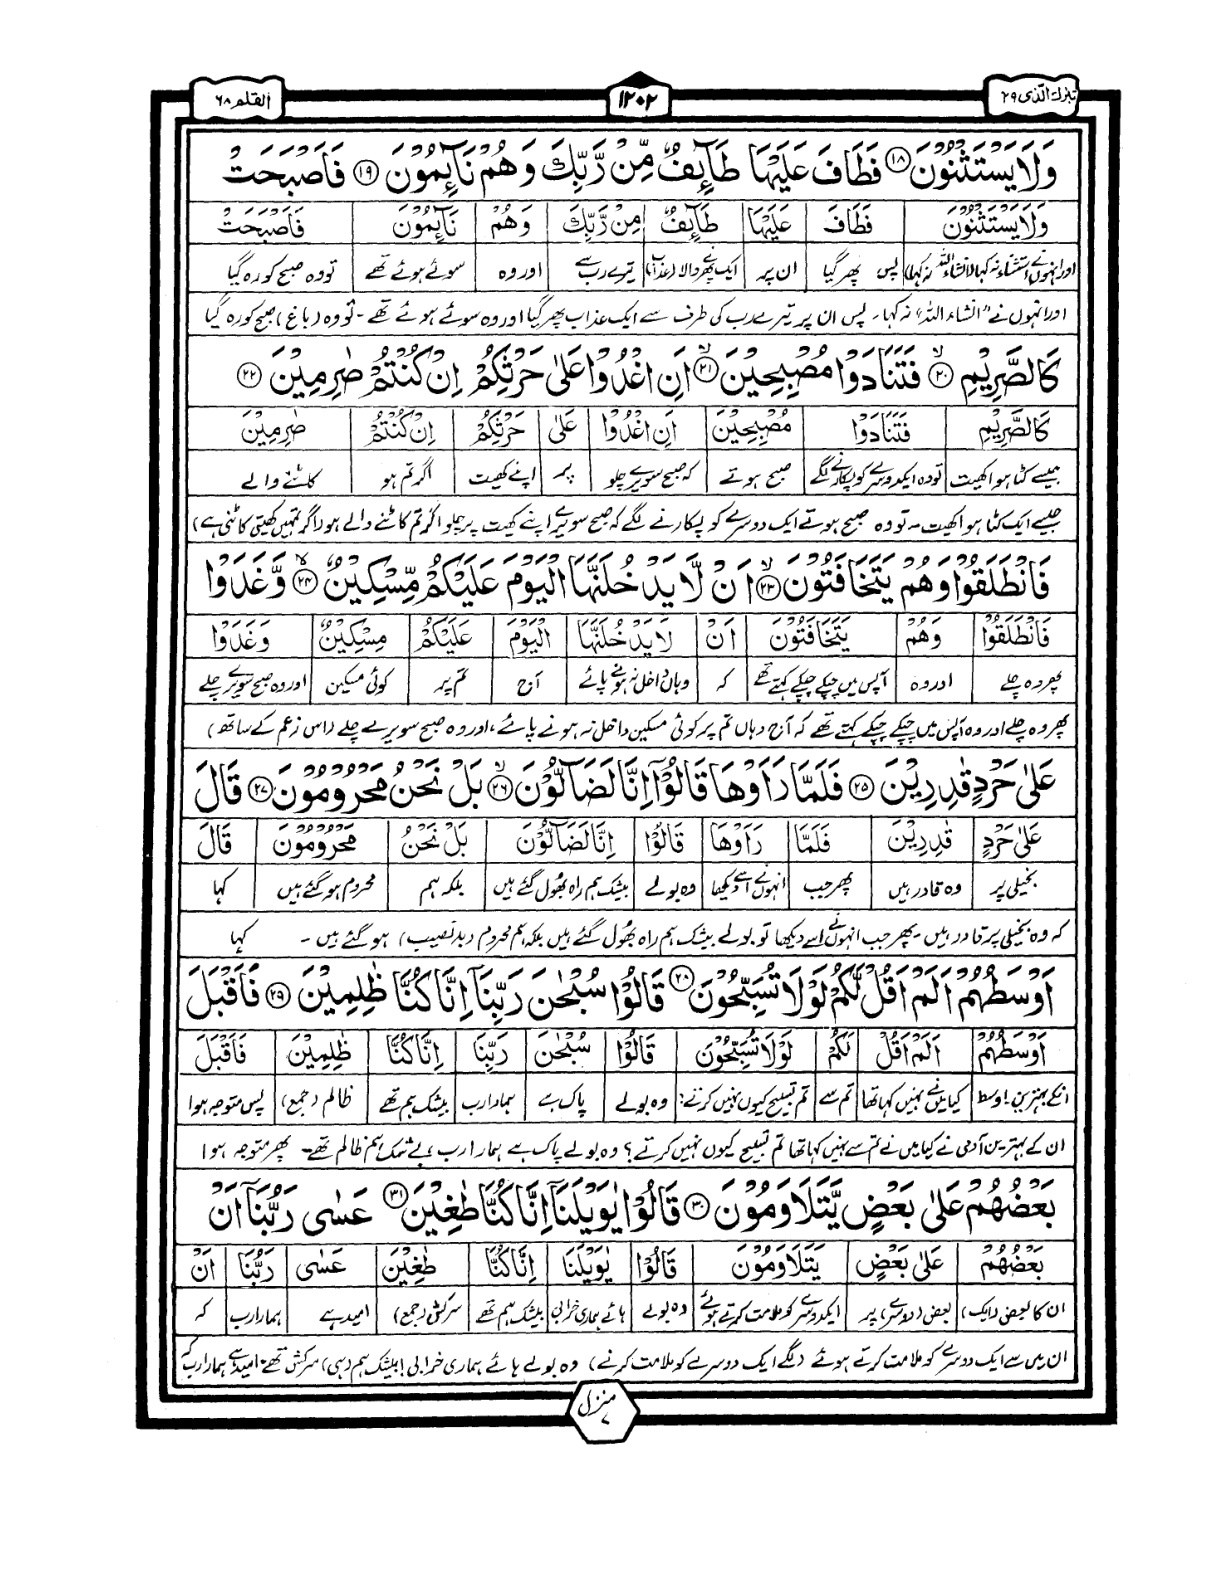 تبٰرك الّذی ۲۹
۱۲۰۲
القلم ۶۸
وَلَا یَسْتَثْنُوْنَ ۱۸ فَطَافَ عَلَیْهَا طَآئِفٌ مِّنْ رَّبِّكَ وَهُمْ نَآئِمُوْنَ ۱۹ فَاَصْبَحَتْ
وَلَا یَسْتَثْنُوْنَ فَطَافَ عَلَیْهَا طَآئِفٌ مِنْ رَّبِّكَ وَهُمْ نَآئِمُوْنَ فَاَصْبَحَتْ
اور انہوں نے استثناء نہ کہا (انشاء اللہ نہ کہا) پس پھر گیا ان پر ایک پھرنے والا (عذاب) تیرے رب سے اور وہ سوئے ہوئے تھے تو وہ صبح کو رہ گیا
اور انہوں نے "انشاء اللہ" نہ کہا۔ پس ان پر تیرے رب کی طرف سے ایک عذاب پھر گیا اور وہ سوئے ہوئے تھے۔ تو وہ (باغ) صبح کو رہ گیا
كَالصَّرِیْمِ ۲۰ فَتَنَادَوْا مُصْبِحِیْنَ ۲۱ اَنِ اغْدُوْا عَلٰی حَرْثِكُمْ اِنْ كُنْتُمْ صٰرِمِیْنَ ۲۲
كَالصَّرِیْمِ فَتَنَادَوْا مُصْبِحِیْنَ اَنِ اغْدُوْا عَلٰی حَرْثِكُمْ اِنْ كُنْتُمْ صٰرِمِیْنَ
جیسے کٹا ہوا کھیت تو وہ ایک دوسرے کو پکارنے لگے صبح ہوتے کہ صبح سویرے چلو پر اپنے کھیت اگر تم ہو کاٹنے والے
جیسے ایک کٹا ہوا کھیت۔ تو وہ صبح ہوتے ایک دوسرے کو پکارنے لگے کہ صبح سویرے اپنے کھیت پر چلو اگر تم کاٹنے والے ہو (اگر تمہیں کھیتی کاٹنی ہے)
فَانْطَلَقُوْا وَهُمْ یَتَخَافَتُوْنَ ۲۳ اَنْ لَّا یَدْخُلَنَّهَا الْیَوْمَ عَلَیْكُمْ مِّسْكِیْنٌ ۲۴ وَّغَدَوْا
فَانْطَلَقُوْا وَهُمْ یَتَخَافَتُوْنَ اَنْ لَا یَدْخُلَنَّهَا الْیَوْمَ عَلَیْكُمْ مِسْكِیْنٌ وَغَدَوْا
پھر وہ چلے اور وہ آپس میں چپکے چپکے کہتے تھے کہ وہاں داخل نہ ہونے پائے آج تم پر کوئی مسکین اور وہ صبح سویرے چلے
پھر وہ چلے اور وہ آپس میں چپکے چپکے کہتے تھے کہ آج وہاں تم پر کوئی مسکین داخل نہ ہونے پائے، اور وہ صبح سویرے چلے (اس زعم کے ساتھ)
عَلٰی حَرْدٍ قٰدِرِیْنَ ۲۵ فَلَمَّا رَاَوْهَا قَالُوْٓا اِنَّا لَضَآلُّوْنَ ۲۶ بَلْ نَحْنُ مَحْرُوْمُوْنَ ۲۷ قَالَ
عَلٰی حَرْدٍ قٰدِرِیْنَ فَلَمَّا رَاَوْهَا قَالُوْٓا اِنَّا لَضَآلُّوْنَ بَلْ نَحْنُ مَحْرُوْمُوْنَ قَالَ
بخیلی پر وہ قادر ہیں پھر جب انہوں نے اسے دیکھا وہ بولے بیشک ہم راہ بھول گئے ہیں بلکہ ہم محروم ہو گئے ہیں کہا
کہ وہ بخیلی پر قادر ہیں۔ پھر جب انہوں نے اسے دیکھا تو بولے بیشک ہم راہ بھول گئے ہیں بلکہ ہم محروم (بد نصیب) ہو گئے ہیں۔ کہا
اَوْسَطُهُمْ اَلَمْ اَقُلْ لَّكُمْ لَوْلَا تُسَبِّحُوْنَ ۲۸ قَالُوْا سُبْحٰنَ رَبِّنَآ اِنَّا كُنَّا ظٰلِمِیْنَ ۲۵ فَاَقْبَلَ
اَوْسَطُهُمْ اَلَمْ اَقُلْ لَكُمْ لَوْلَا تُسَبِّحُوْنَ قَالُوْا سُبْحٰنَ رَبِّنَا اِنَّا كُنَّا ظٰلِمِیْنَ فَاَقْبَلَ
انکے بہترین۔ اوسط کیا میں نے نہیں کہا تھا تم سے تم تسبیح کیوں نہیں کرتے: وہ بولے پاک ہے ہمارا رب بیشک ہم تھے ظالم (جمع) پس متوجہ ہوا
ان کے بہترین آدمی نے کیا میں نے تم سے نہیں کہا تھا تم تسبیح کیوں نہیں کرتے؟ وہ بولے پاک ہے ہمارا رب، بے شک ہم ظالم تھے۔ پھر متوجہ ہوا
بَعْضُهُمْ عَلٰی بَعْضٍ یَّتَلَاوَمُوْنَ ۳۰ قَالُوْا یٰوَیْلَنَآ اِنَّا كُنَّا طٰغِیْنَ ۳۱ عَسٰی رَبُّنَآ اَنْ
بَعْضُهُمْ عَلٰی بَعْضٍ یَتَلَاوَمُوْنَ قَالُوْا یٰوَیْلَنَا اِنَّا كُنَّا طٰغِیْنَ عَسٰی رَبُّنَا اَنْ
ان کا بعض (ایک) بعض (دوسرے) پر ایک دوسرے کو ملامت کرتے ہوئے وہ بولے ہائے ہماری خرابی بیشک ہم تھے سرکش (جمع) امید ہے ہمارا رب کہ
ان میں سے ایک دوسرے کو ملامت کرتے ہوئے (لگے ایک دوسرے کو ملامت کرنے) وہ بولے ہائے ہماری خرابی! بیشک ہم (ہی) سرکش تھے۔ امید ہے ہمارا رب کہ
منزل ۷